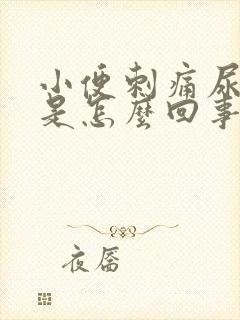 小便刺痛尿
是怎麼回事
夜唇